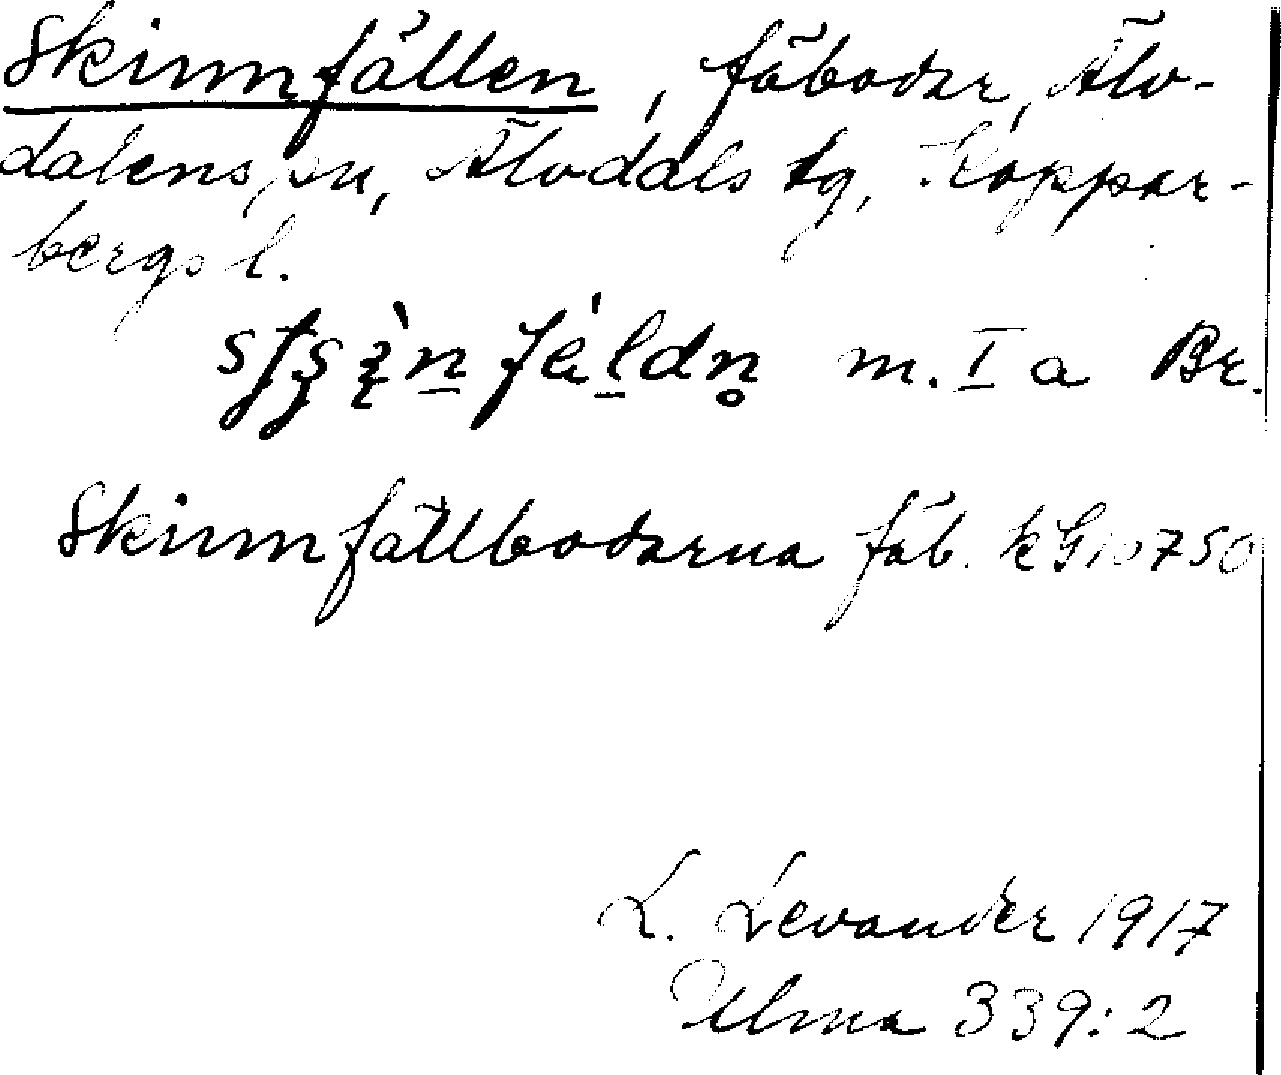 Skinnfällen, fäbodar, Älv-
dalens sn, Älvdals tg, Koppar-
bergs l.
m. I a Br.
Skinnfällbodarna fäb. kG 10750
L. Levander 1917
Ulma 339:2